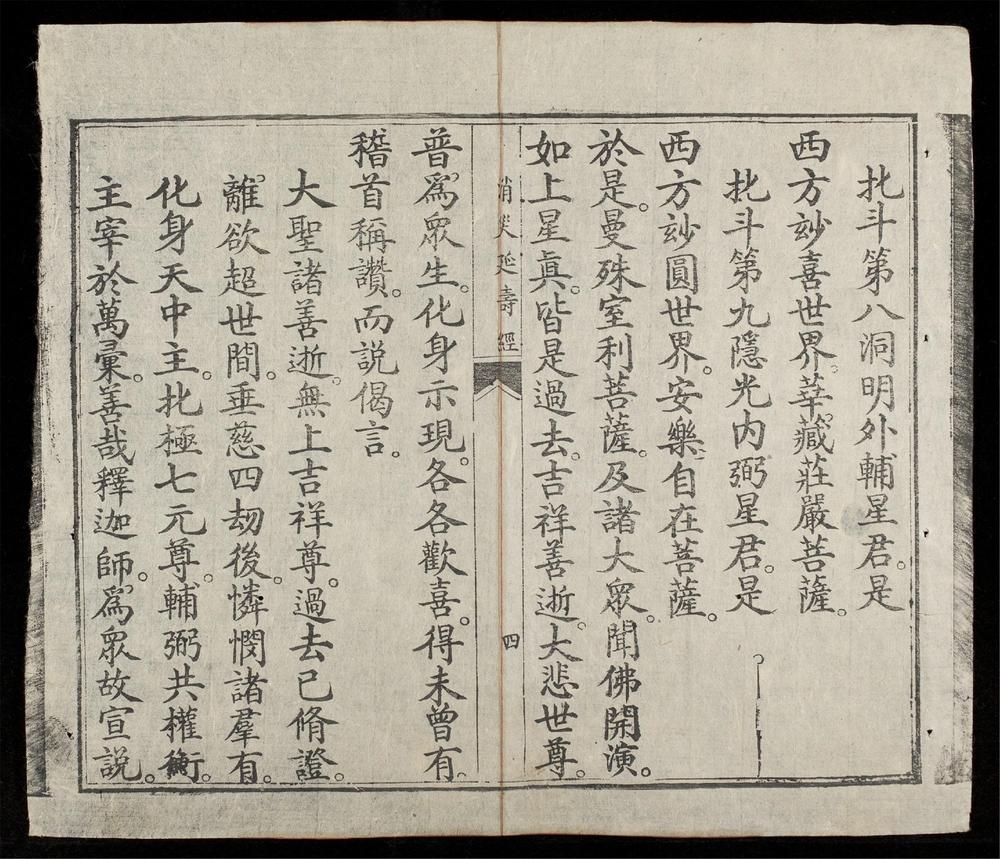 北斗第八洞明外輔星君。是
西方玅喜世界。華藏莊嚴菩薩。
北斗第九隱光内弼星君。是
西方玅圓世界。安樂自在菩薩。
於是。曼殊室利菩薩。及諸大衆。聞佛開演。
如上星眞。皆是過去。吉祥善逝。大悲世尊。
消灾延壽經
四
普爲衆生。化身示現。各各歡喜。得未曾有。
稽首稱讚。而説偈言。
大聖諸善逝。無上吉祥尊。過去已脩證。
離欲超世間。垂慈四劫後。憐憫諸羣有。
化身天中主。北極七元尊。輔弼共權衡。
主宰於萬彙。善哉釋迦師。爲衆故宣説。